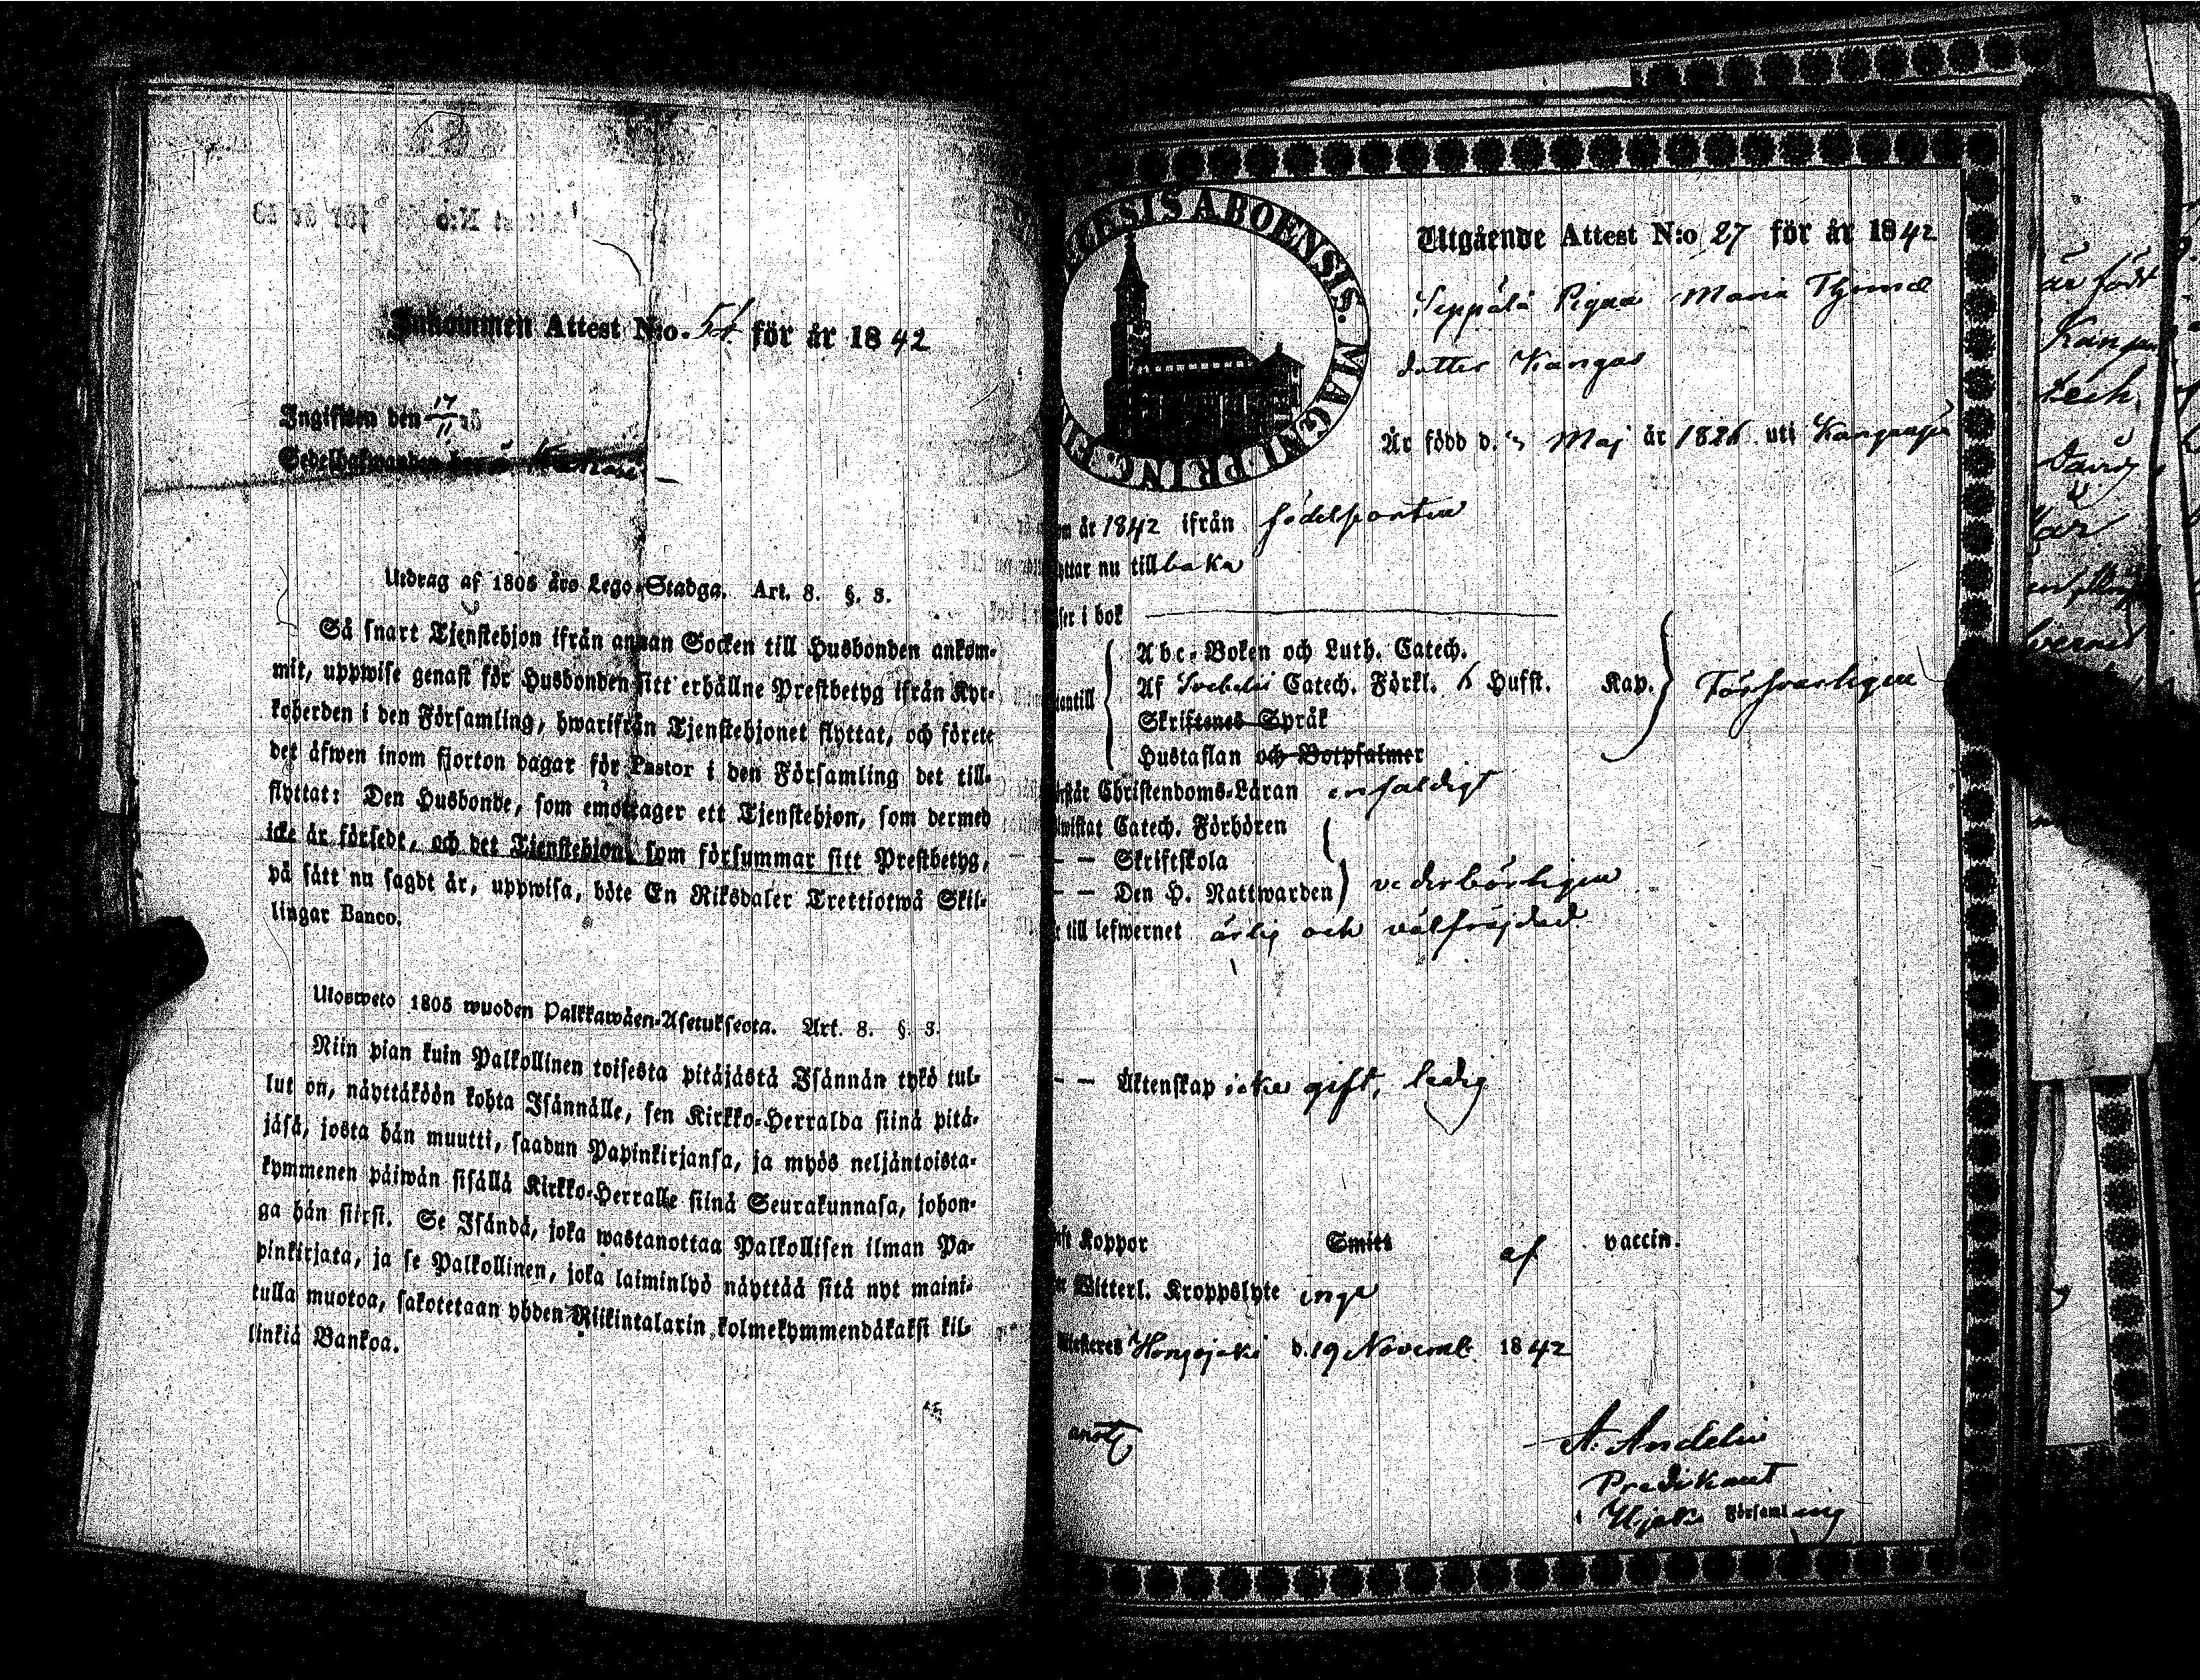 Inkommen Attest N:o 51. för år 1842
Ingifwen den 17/11
Sedelhafwanden
Utdrag af 1805 års Lego-Stadga. Art. 8. §. 3.
Så snart Tjenstehjon ifrån annan Socken till Husbonden ankom-
mit, uppwise genast för Husbonden sitt erhållne Prestbetyg ifrån Kyr-
koherden i den Församling, hwarifrån Tjenstehjonet flyttat, och förete
det äfwen inom fjorton dagar för Pastor i den Församling det till-
flyttat: Den Husbonde, som emottager ett Tjenstehjon, som dermed
icke är försedt, och det Tjenstehjon, som försummar sitt Prestbetyg,
på sätt nu sagdt är, uppwisa, böte En Riksdaler Trettiotwå Skil-
lingar Banco.
Ulosweto 1805 wuoden Palkkawäen-Asetuksesta. Art. 8. §. 3.
Niin pian kuin Palkollinen toisesta pitäjästä Isännän tykö tul-
lut on, näyttäköön kohta Isännälle, sen Kirkko-Herralda siinä pitä-
jäsä, josta hän muutti, saadun Papinkirjansa, ja myös neljäntoista-
kymmenen päiwän sisällä Kirkko-Herralle siinä Seurakunnasa, johon-
ga hän siirsi. Se Isändä, joka wastanottaa Palkollisen ilman Pa-
pinkirjata, ja se Palkollinen, joka laiminlyö näyttää sitä nyt maini-
tulla muotoa, sakotetaan yhden Riikintalarin kolmekymmendäkaksi kil-
linkiä Bankoa.
ABOENSIS. MAGNI PRINC.
Utgående Attest N:o 27 för år 1842
Seppälä Pigan Maria Thomæ
dotter Kangas
Är född d. Maj år 1826 uti
år 1842 ifrån födelseorten
nu tillbaka
i bok
Abc-Boken och Luth. Catech.
Af Svebelii Catech. Förkl. 6 Hufst. Kap. Försvarligen
Skriftenes Språk
Hustaflan och Botpsalmer
Christendoms-Läran enfaldigt
Catech. Förhören
— — Skriftskola
— — Den H. Nattwarden vederbörligen
till lefwernet ärlig och välfräjdad.
— — Äktenskap icke gift, ledig
Koppor Smitt af vaccin.
Witterl. Kroppslyte inga
Hongojoki d. 19 Novemb. 1842
A. Andelin
Predikant
i Hjoki Församling